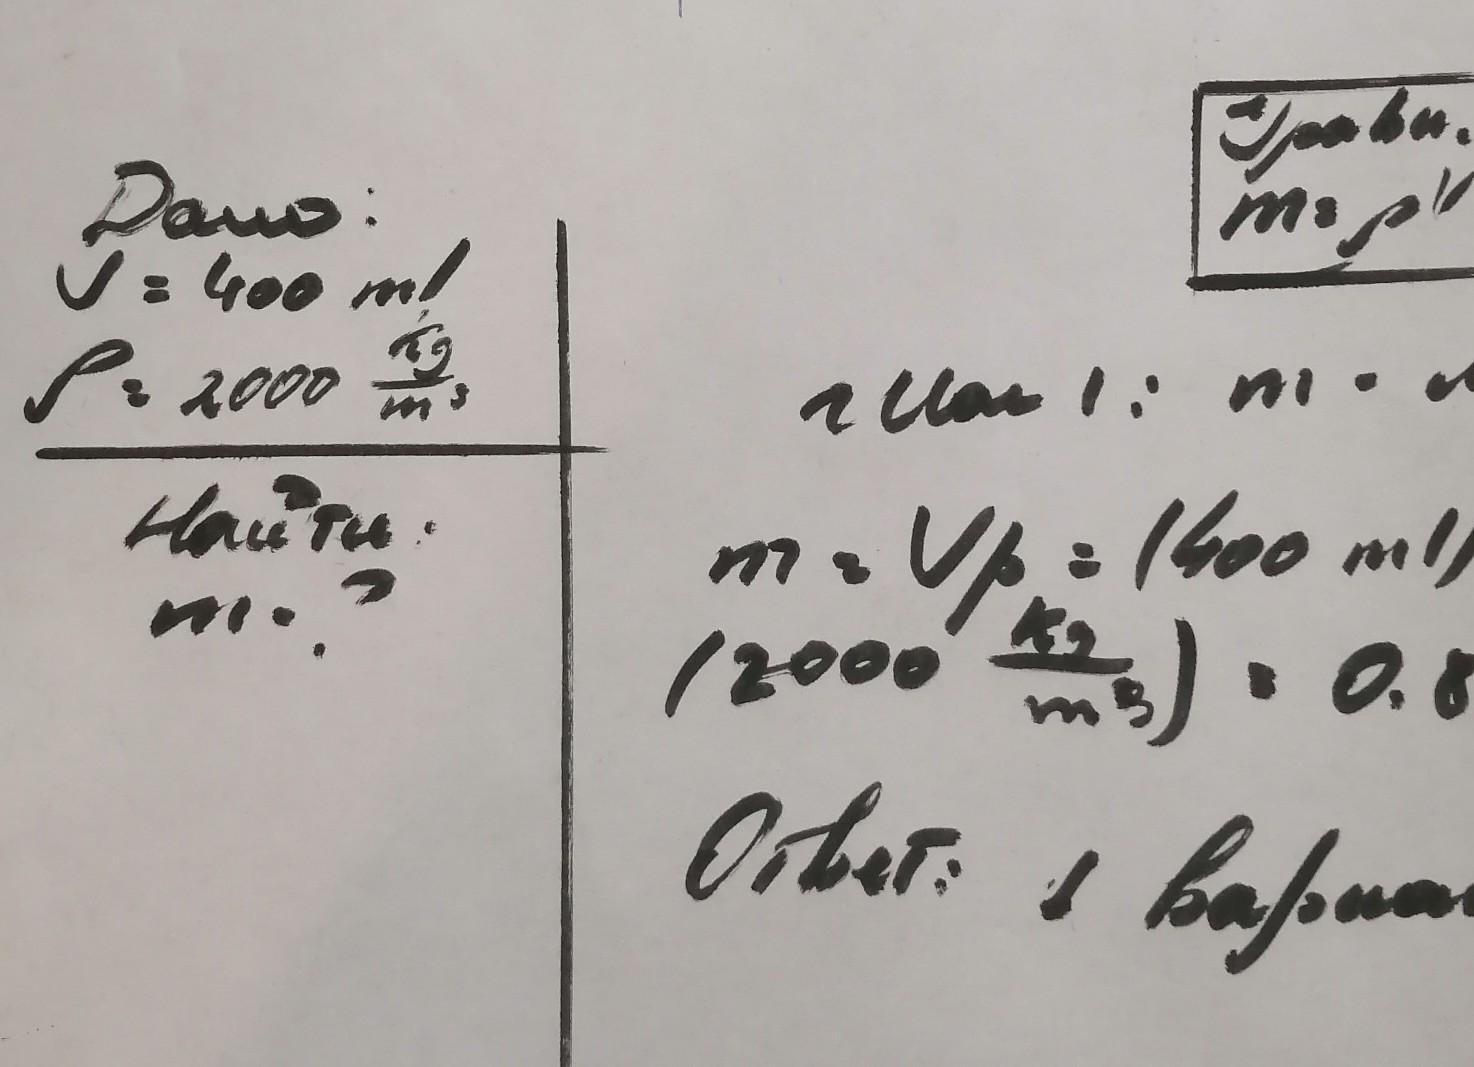 Дано:
V = 400 ml
ρ = 2000 kg/m³
Найти:
m = ?
m = ρV
1: m =
m = Vρ = (400 ml)
(2000 kg/m³) = 0.8
Ответ: 1 вариан